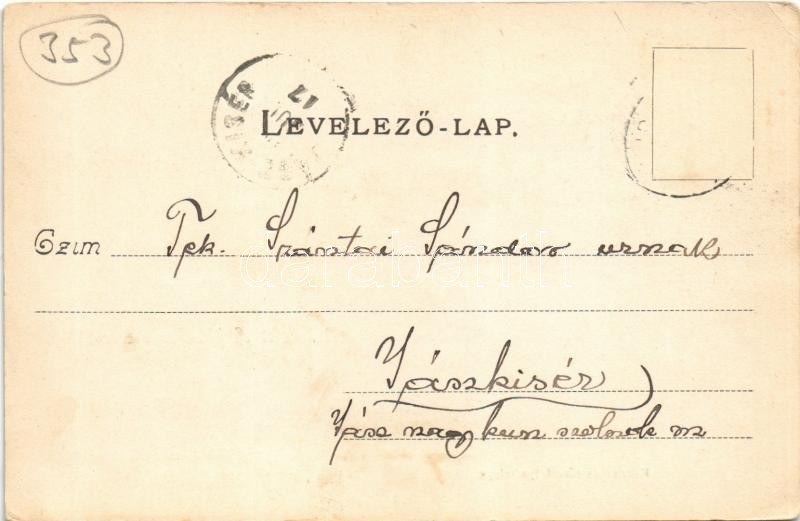 353
KISÉR
17
LEVELEZŐ-LAP.
Czim Tek. Szántai Sándor urnak
darabanth
Jászkisér
Jász nagy kun szolnok m